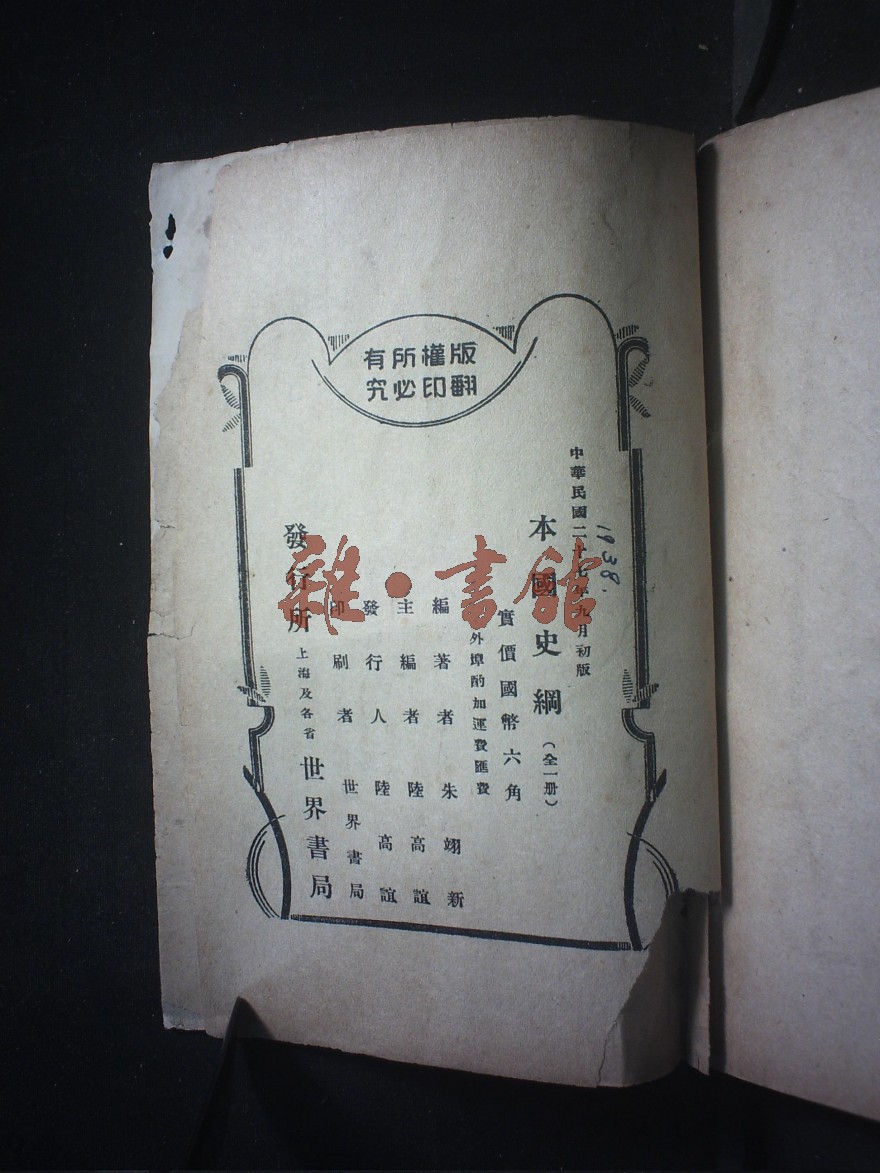 版權所有
翻印必究
中華民國二十七年九月初版
1938.
本國史綱(全一册)
實價國幣六角
外埠酌加運費匯費
編著者 朱翊新
主編者 陸高誼
發行人 陸高誼
印刷者 世界書局
發行所 上海及各省 世界書局
雜·書館